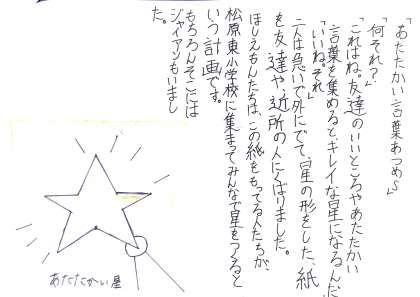 「あたたかい言葉あつめ〜」
「何それ？」
「これはね。友達のいいところやあたたかい
言葉を集めると、キレイな星になるんだ
「いいね。それ」
二人は急いで外にでて、星の形をした、紙
を友達や、近所の人にくばりました。
ほしえもんたちは、この紙をもってる人たちが、
松原東小学校に集まってみんなで星をつくると
いう計画です。
もちろんそこには
ジャイアンもいまし
た。
あたたかい星